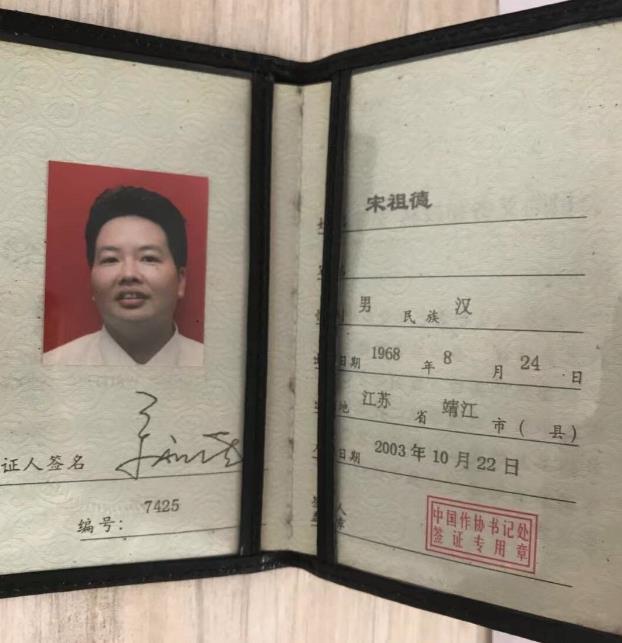 证人签名
编号: 7425
宋祖德
男 民族 汉
日期 1968 年 8 月 24 日
地 江苏 省 靖江 市 ( 县)
日期 2003 年 10 月 22 日
人
章
中国作协书记处
签证专用章